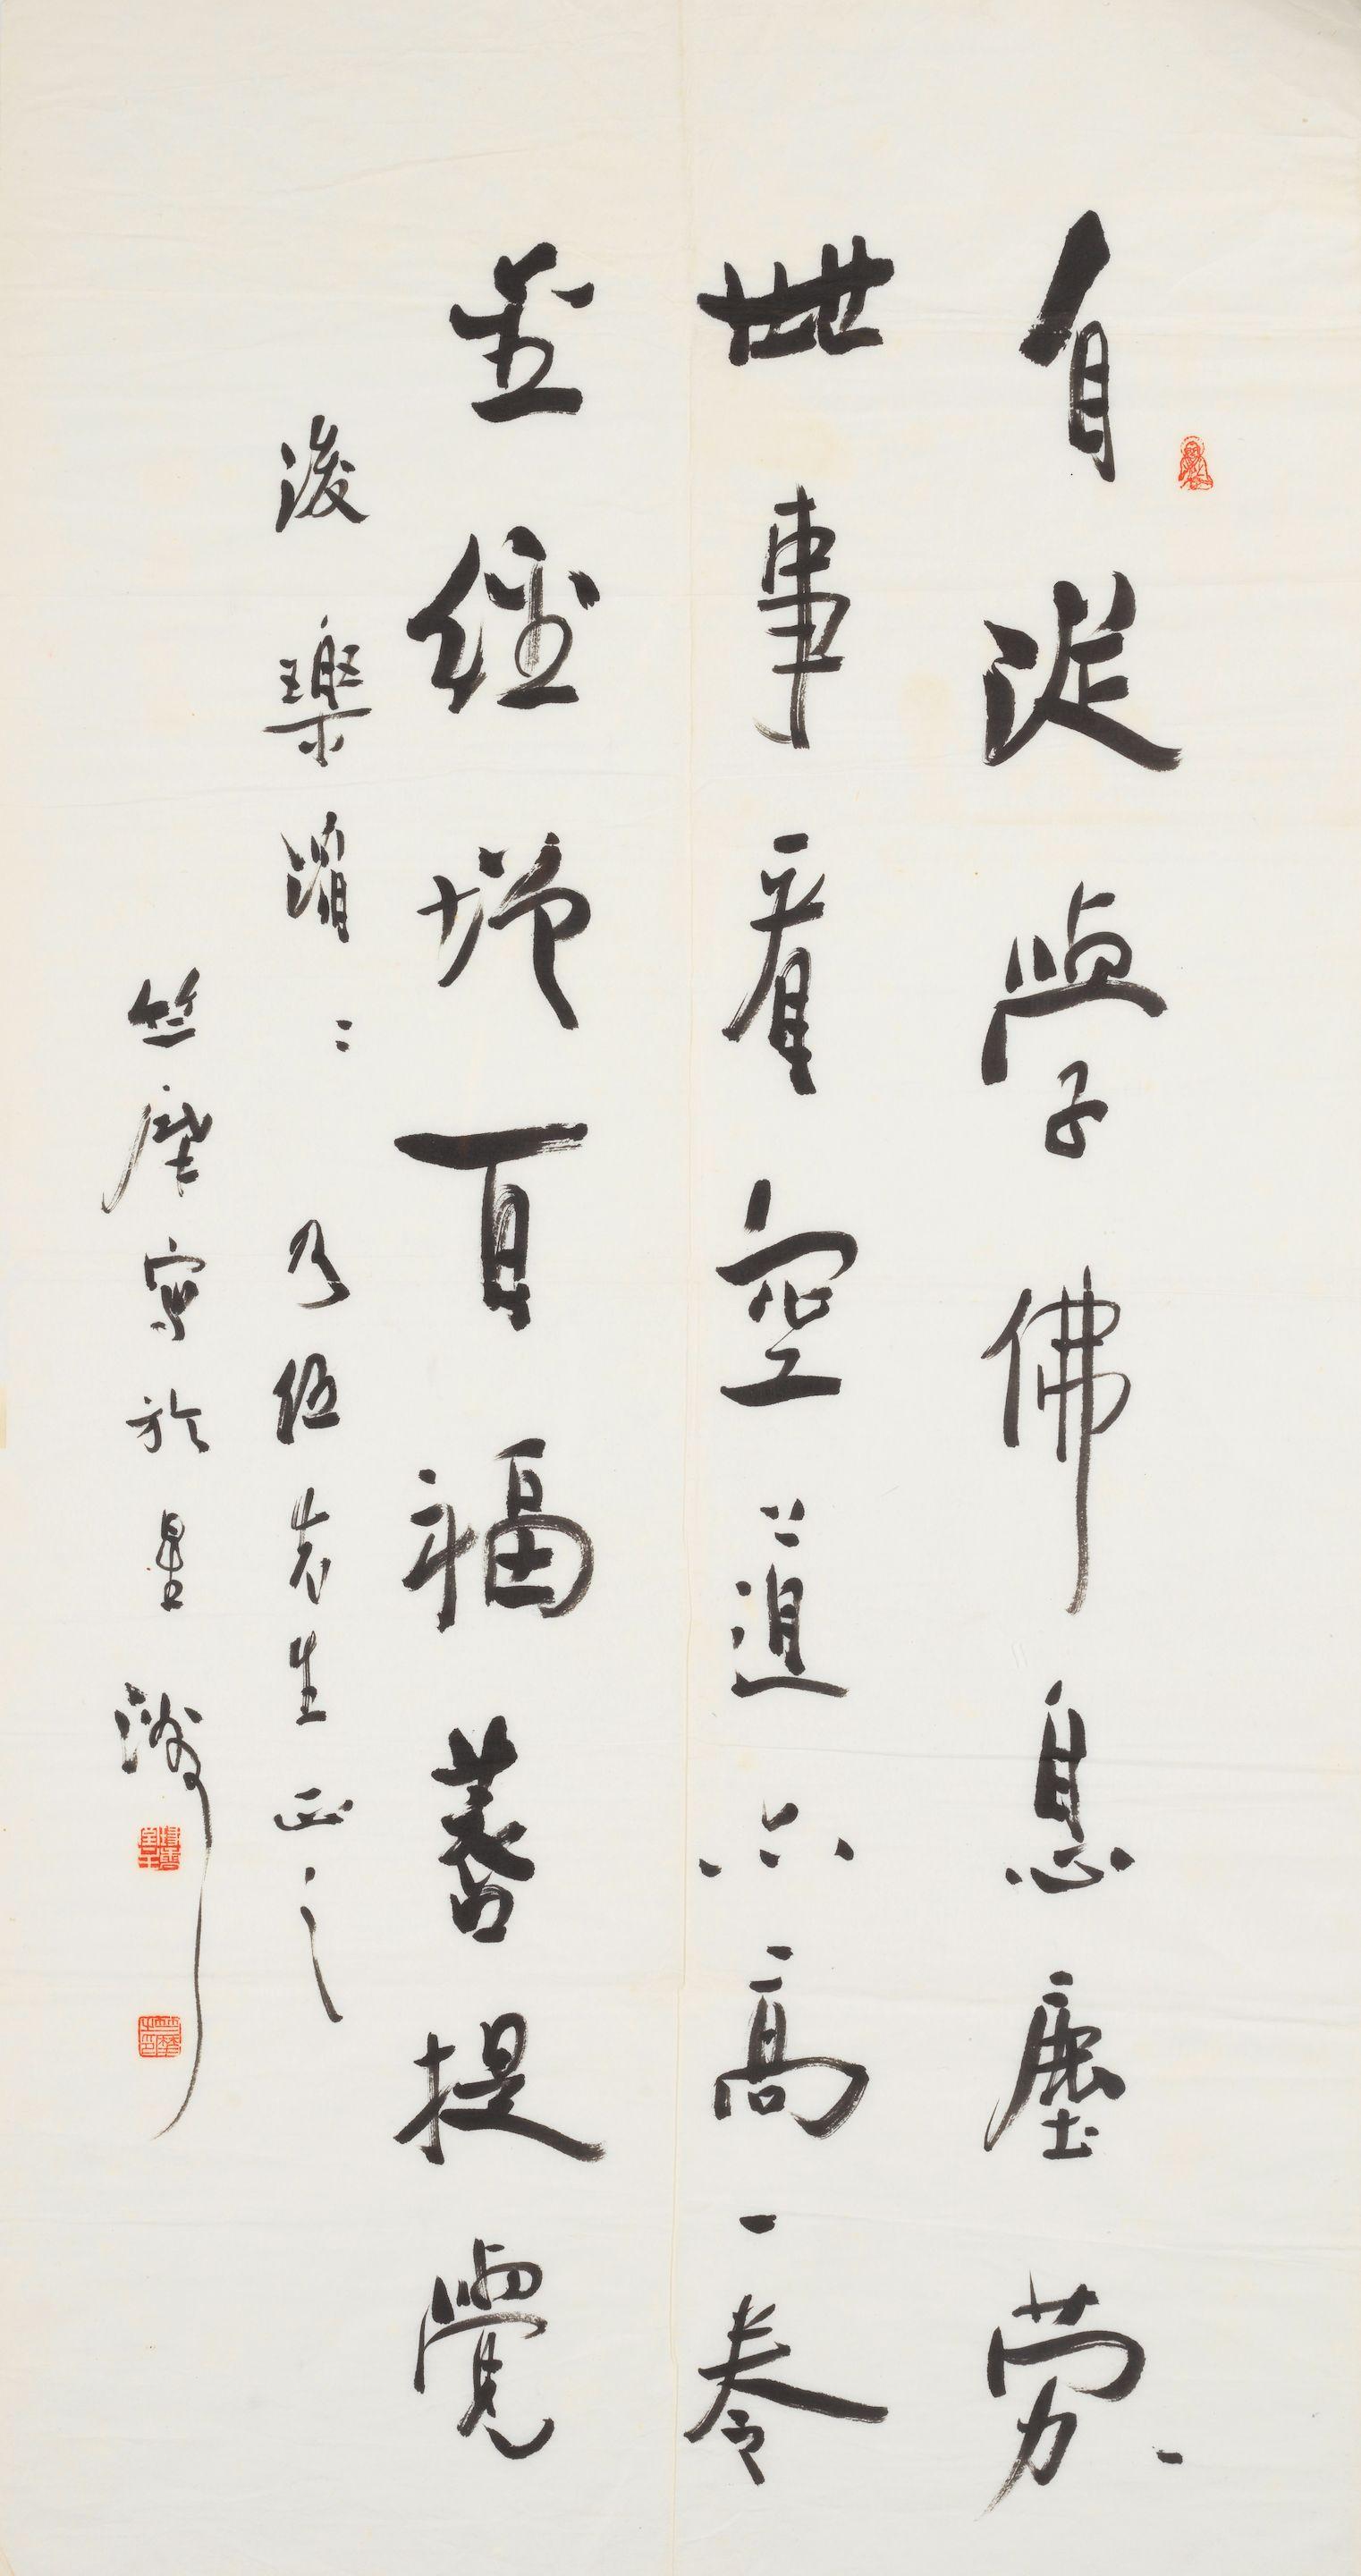 自從學佛息塵勞
世事看空道亦高一卷
金經增百福菩提覺
後樂滔滔 乃伍先生正之
竺摩寫於星洲